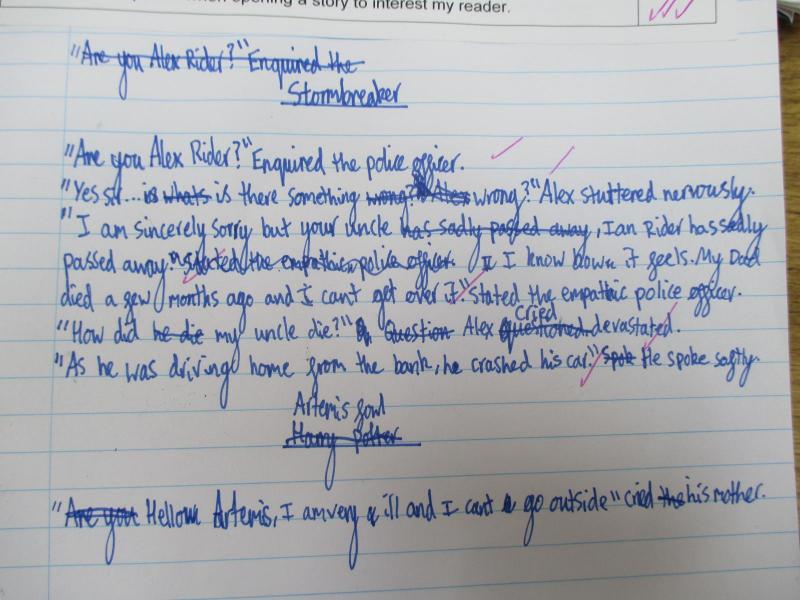 when opening a story to interest my reader.
"Are you Alex Rider?" Enquired the
Stormbreaker
"Are you Alex Rider?" Enquired the police officer.
"Yes sir... is whats is there something wrong? Alex wrong?" Alex stuttered nervously.
"I am sincerely sorry but your uncle has sadly passed away, Ian Rider has sadly
passed away." Stated the empathic police officer. I know how it feels. My Dad
died a few months ago and I cant get over it." Stated the empathic police officer.
"How did he die my uncle die?" Question Alex questioned cried devastated.
"As he was driving home from the bank, he crashed his car." Spok He spoke softly.
Artemis fowl
Harry Potter
"Are you Hellow Artemis, I am very ill and I cant go outside" cried the his mother.